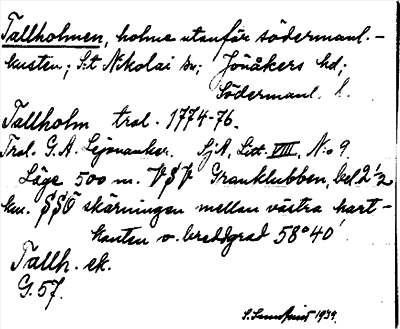 Tallholmen, holme utanför södermanl.-
kusten; S:t Nikolai sn; Jönåkers hd;
Södermanl. l.
Tallholm tral. 1774-76.
Tral. G.A. Lejonanker. SjA, Litt. VIII, N:o 9
Läge 500 m. VSV Granklubben, bel 2 1/2
km. SSÖ skärningen mellan västra kart-
kanten o. breddgrad 58°40'
Tallh. ek.
G. 57.
1939.